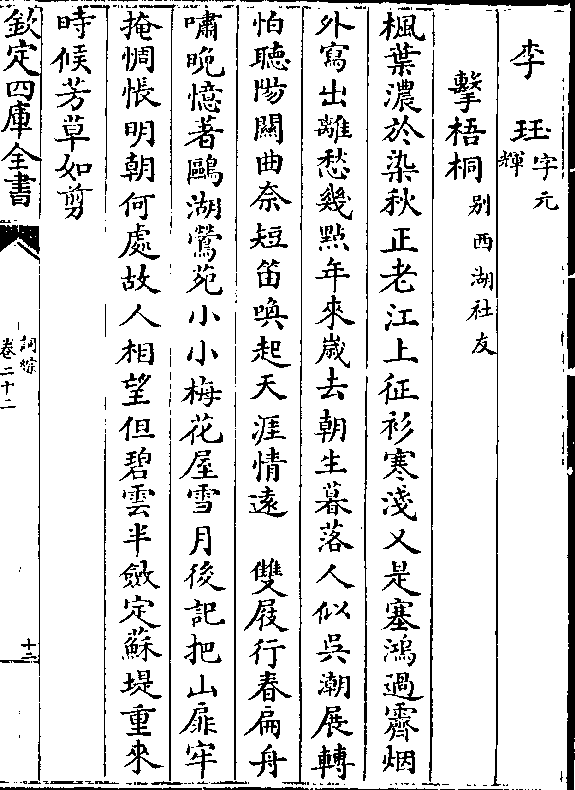 李珏字元
輝
擊梧桐别西湖社友
楓葉濃於染秋正老江上征衫寒淺又是塞鴻過霽烟
外寫出離愁幾點年來嵗去朝生暮落人似吳潮展轉
怕聽陽關曲奈短笛喚起天涯情遠　雙屐行春扁舟
嘯晚憶著鷗湖鶯苑小小梅花屋雪月後記把山扉牢
掩惆悵明朝何處故人相望但碧雲半斂定蘇堤重來
時候芳草如剪
欽定四庫全書
詞綜
卷二十二
十三